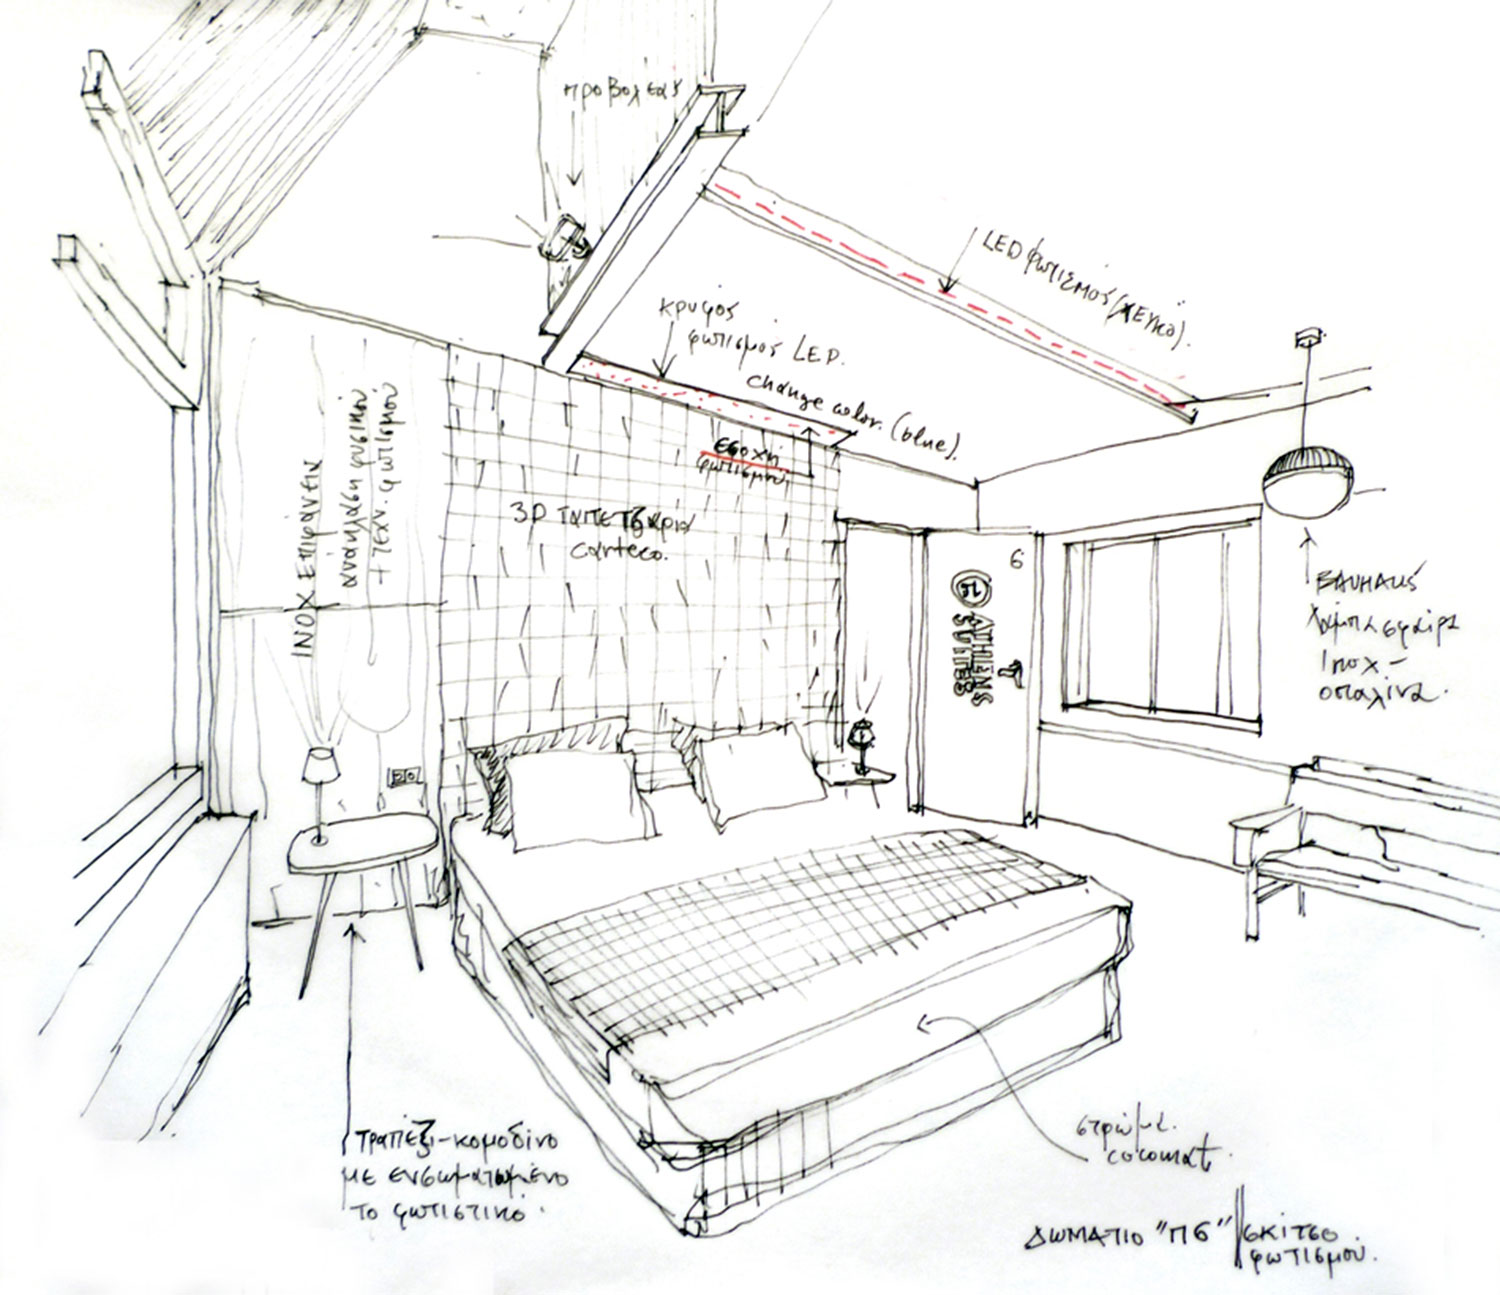 προβολέας
LED φωτισμός (λευκό).
κρυφός
φωτισμός LED.
change color. (blue).
εσοχή
φωτισμού
3D ταπετζαρία
ΙΝΟΧ ΕΠΙΦΑΝΕΙΑ
ανάκλαση φυσικού
+ τεχν. φωτισμού
6
ATHENS
SUITES
BAUHAUS
λάμπα σφαίρα
inox -
οπαλίνα.
τραπέζι-κομοδίνο
με ενσωματωμένο
το φωτιστικό.
στρώμα.
cocomat.
ΔΩΜΑΤΙΟ "Π6" // ΣΚΙΤΣΟ
φωτισμού.